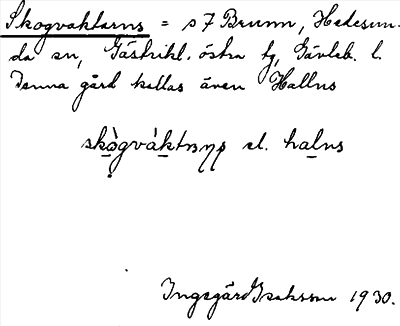 Skogvaktarns = s 7 Brunn, Hedesun-
da sn, Gästrikl. östra tg, Gävleb. l.
Denna gård kallas även Hallns
skògvàktɐṇṣ el. halns
Ingegärd Isaksson 1930.